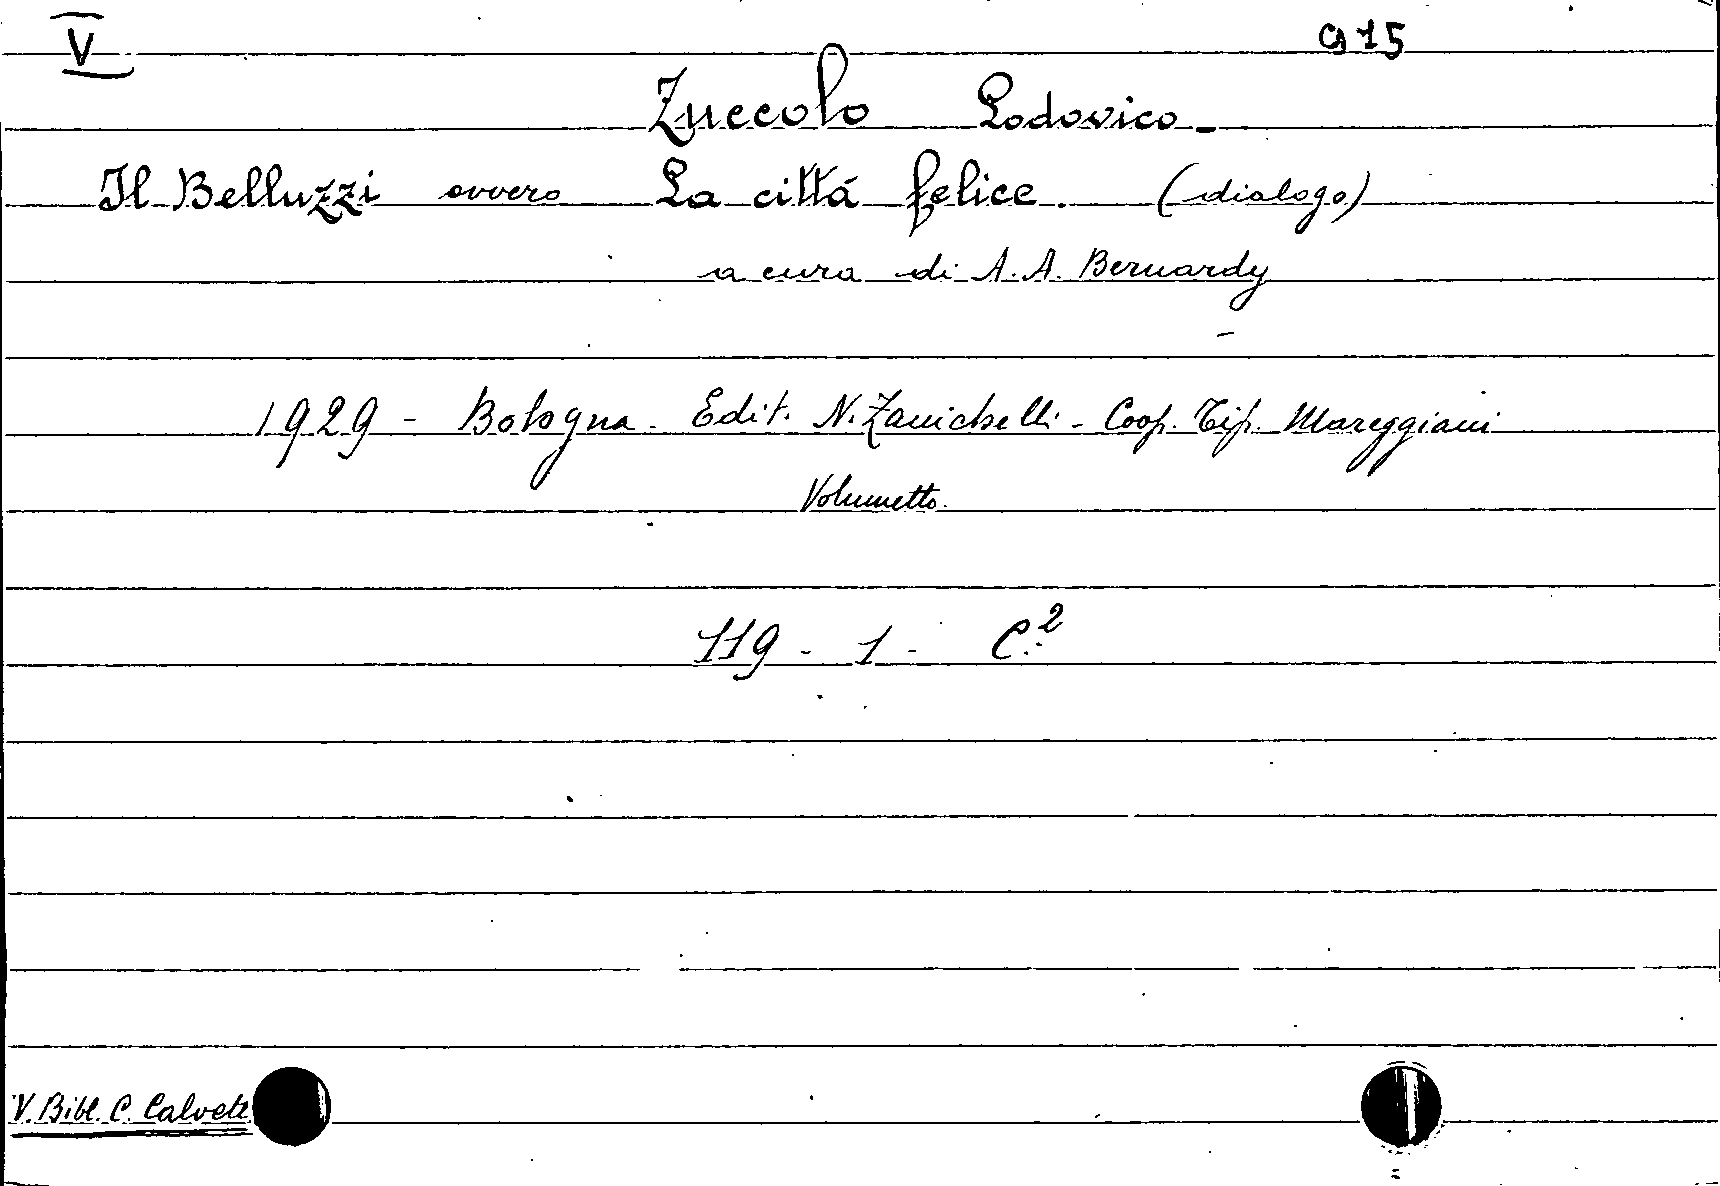 V 915
Zuccolo Lodovico.
Il Belluzzi ovvero La cittá felice. (dialogo)
a cura di A. A. Bernardy
1929 - Bologna. Edit. N. Zanichelli - Coop. Tip. Mareggiani
Volumetto.
119 - 1 - C.2
V. Bibl. C. Calvete